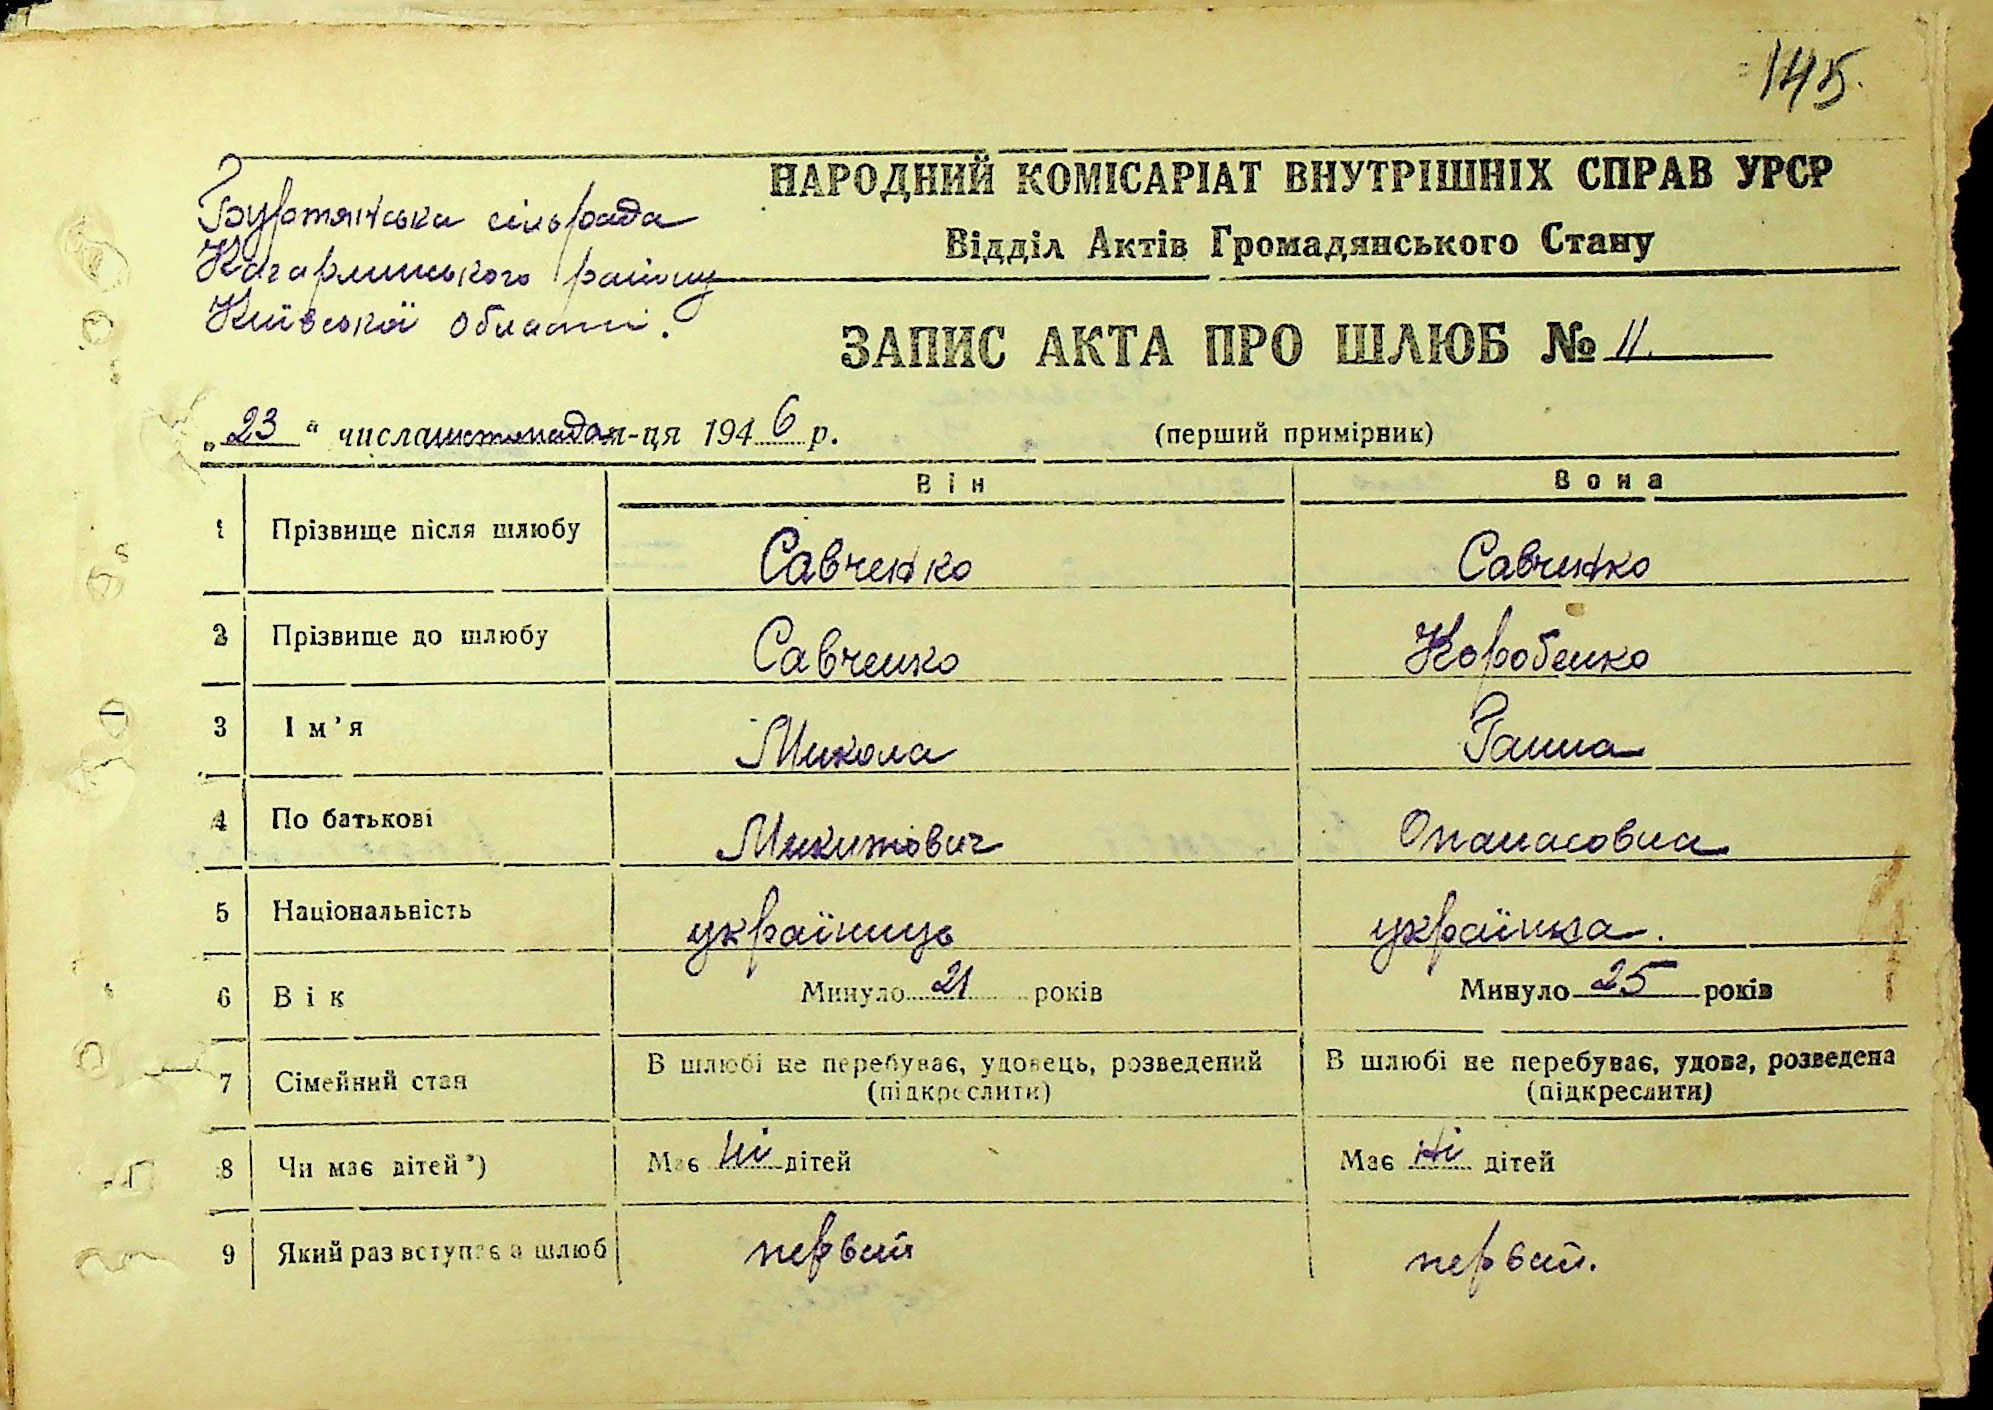 145.
Буртянська сільрада
Кагарлицького району
Київської області.
НАРОДНИЙ КОМІСАРІАТ ВНУТРІШНІХ СПРАВ УРСР
Відділ Актів Громадянського Стану
ЗАПИС АКТА ПРО ШЛЮБ № 11.
„23“ числа листопада м-ця 1946 р.
(перший примірник)
Він Вона
1 Прізвище після шлюбу Савченко Савченко
2 Прізвище до шлюбу Савченко Коробенко
3 Ім’я Микола Ганна
4 По батькові Микитович Опанасовна
5 Національність українець українка.
6 Вік Минуло 21 років Минуло 25 років
7 Сімейний стан В шлюбі не перебуває, удовець, розведений В шлюбі не перебуває, удова, розведена
(підкреслити) (підкреслити)
8 Чи має дітей*) Має ні дітей Має ні дітей
9 Який раз вступає в шлюб первий первий.